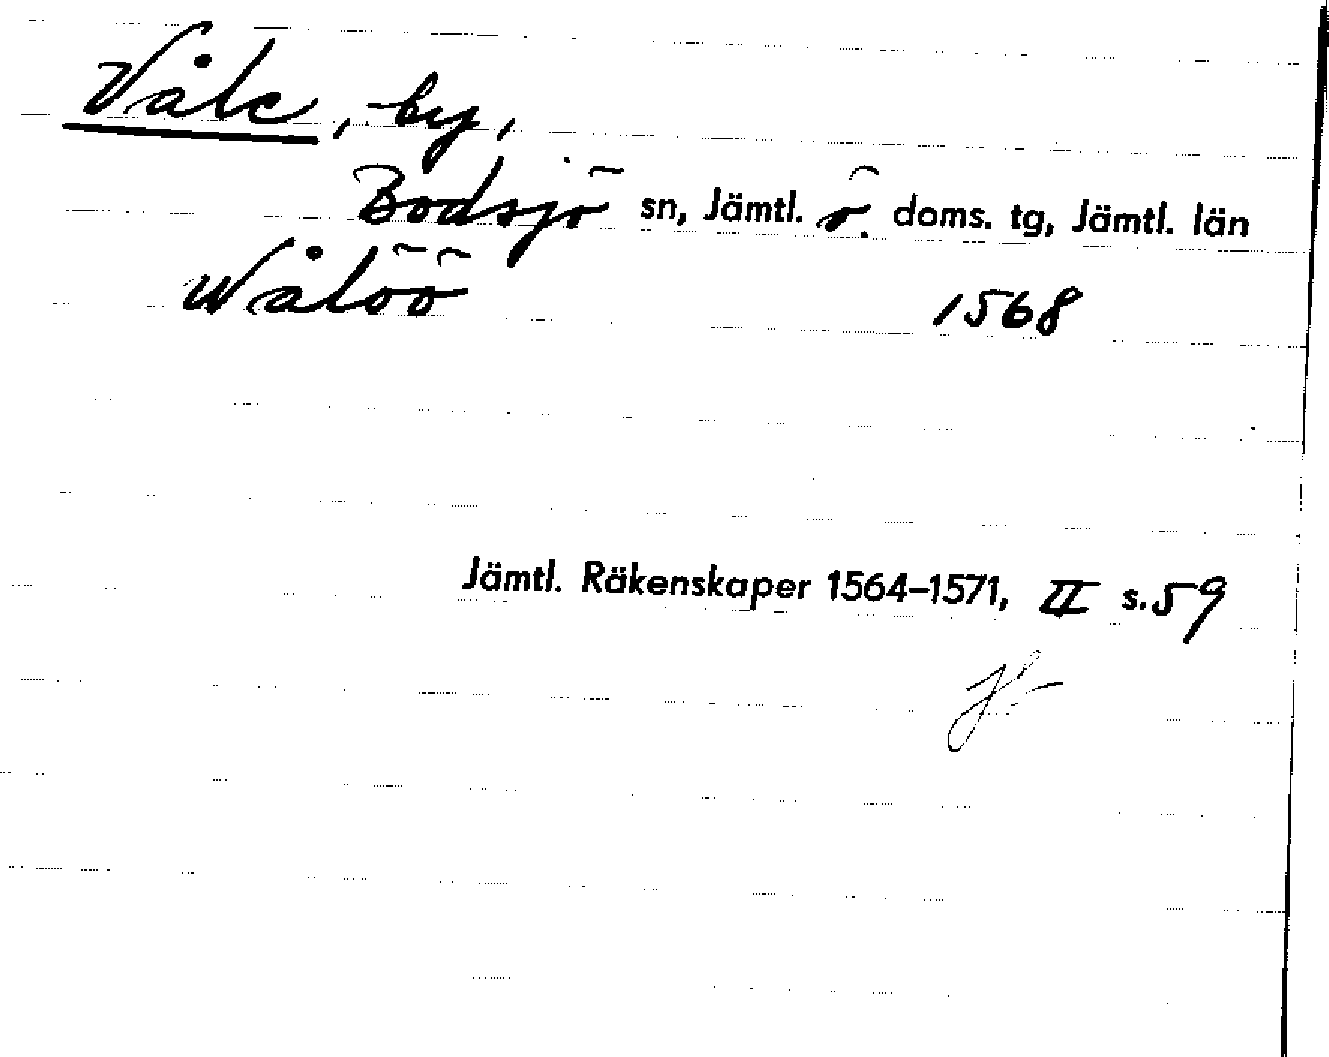 Våle, by,
Bodsjö sn, Jämtl. ö. doms. tg, Jämtl. län
Wålöö 1568
Jämtl. Räkenskaper 1564–1571, II s. 59